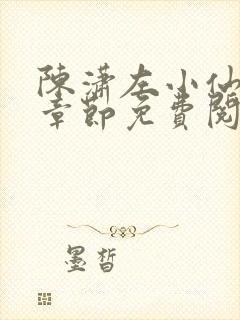 陳瀟左小仙
章節免費閱
墨皙